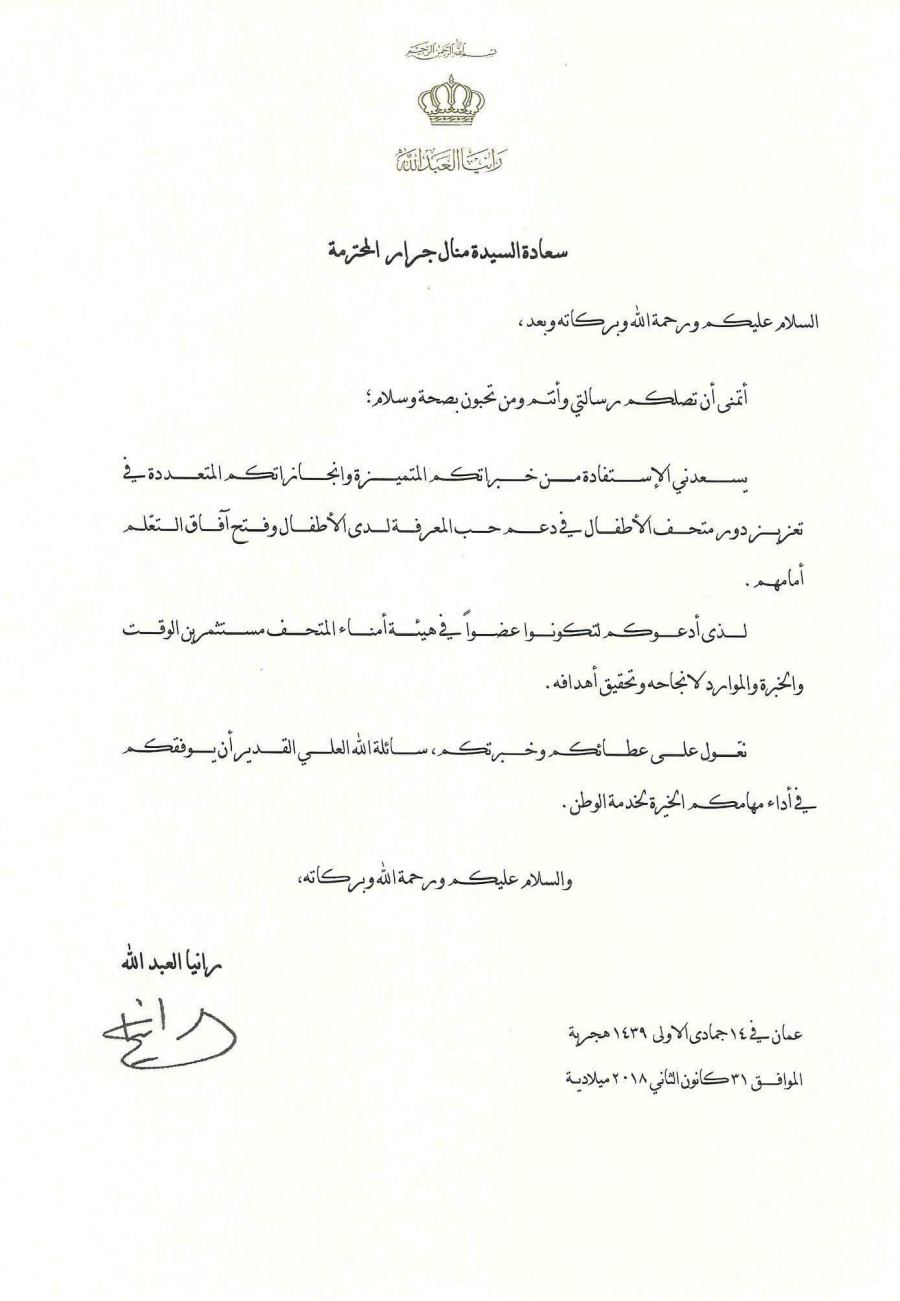 بسم الله الرحمن الرحيم
رانيا العبدالله
سعادة السيدة منال جرار المحترمة
السلام عليكم ورحمة الله وبركاته وبعد،
أتمنى أن تصلكم رسالتي وأنتم ومن تحبون بصحة وسلام؛
يسعدني الإستفادة من خبراتكم المتميزة وانجازاتكم المتعددة في
تعزيز دور متحف الأطفال في دعم حب المعرفة لدى الأطفال وفتح آفاق التعّلم
أمامهم.
لذى أدعوكم لتكونوا عضواً في هيئة أمناء المتحف مستثمرين الوقت
والخبرة والموارد لانجاحه وتحقيق أهدافه.
نعّول على عطائكم وخبرتكم، سائلة الله العلي القدير أن يوفقكم
في أداء مهامكم الخيرة لخدمة الوطن.
والسلام عليكم ورحمة الله وبركاته،
رانيا العبد الله
رانيا
عمان في ١٤ جمادى الاولى ١٤٣٩ هجرية
الموافق ٣١ كانون الثاني ٢٠١٨ ميلادية